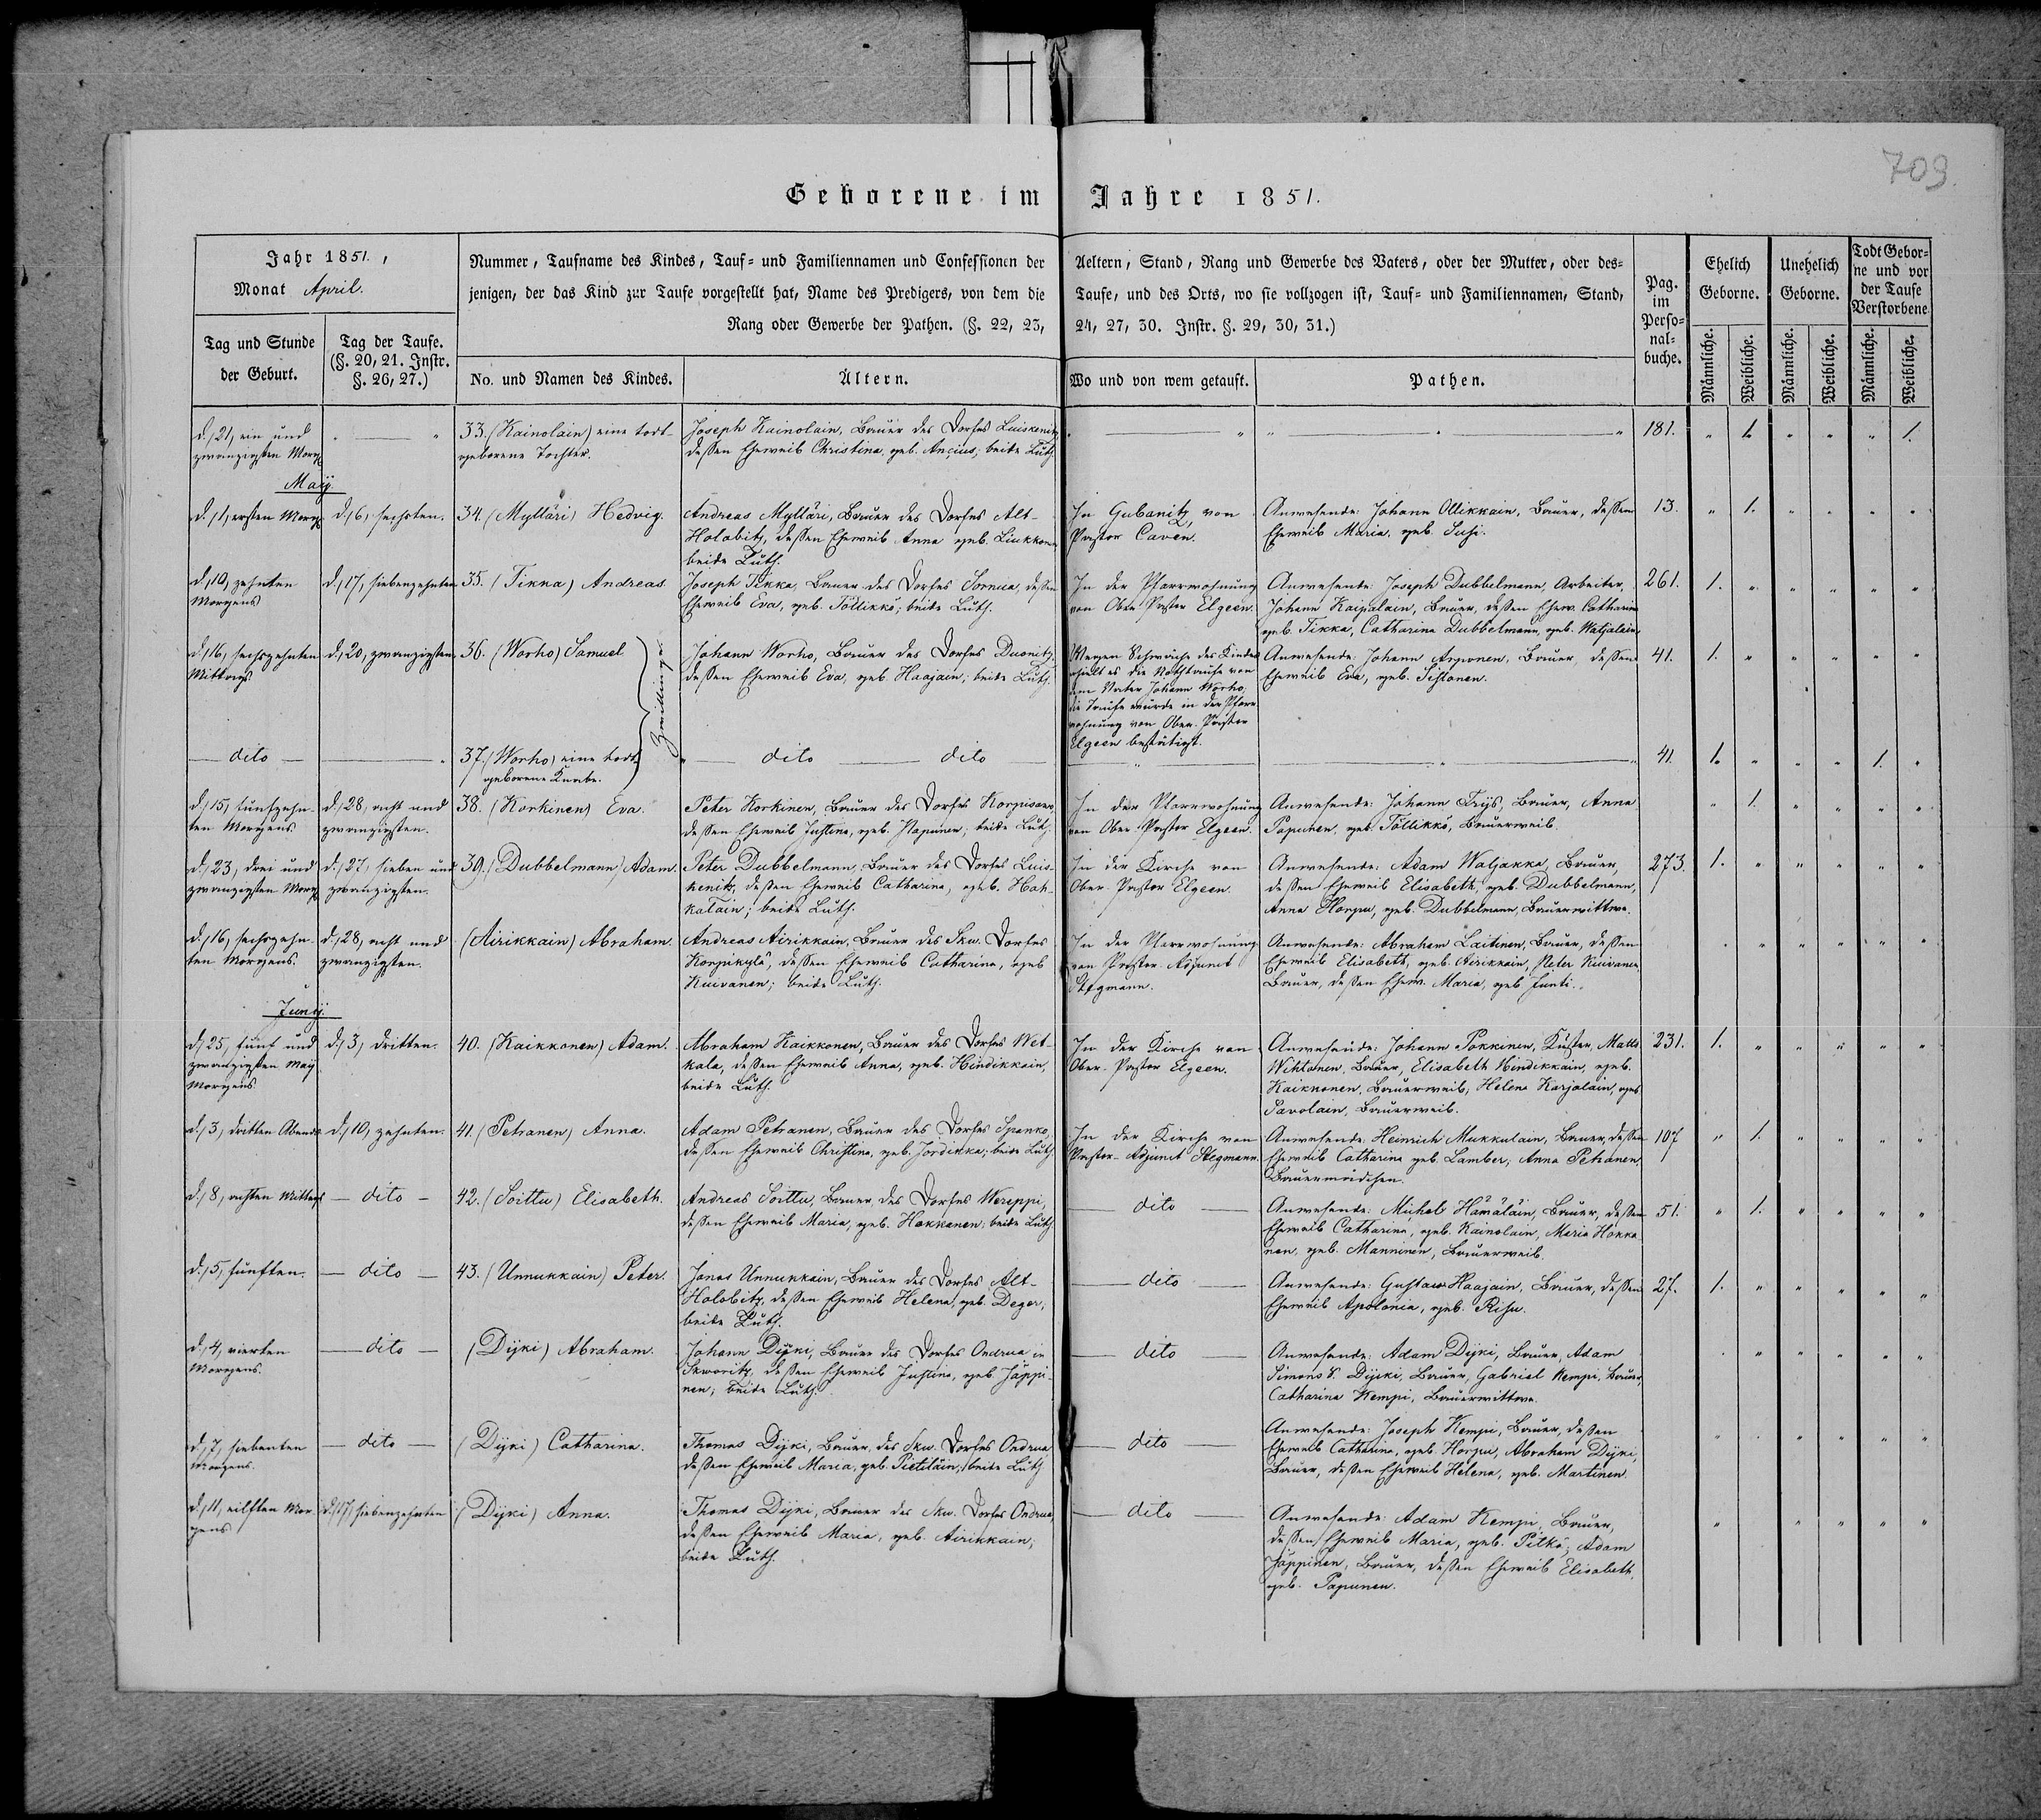 709.
Geborene im Jahre 1851.
Jahr 1851,
Monat April.
Nummer, Taufname des Kindes, Tauf- und Familiennamen und Confessionen der Aeltern, Stand, Rang und Gewerbe des Vaters, oder der Mutter, oder des-
jenigen, der das Kind zur Taufe vorgestellt hat, Name des Predigers, von dem die Taufe, und des Orts, wo sie vollzogen ist, Tauf- und Familiennamen, Stand,
Rang oder Gewerbe der Pathen. (§. 22, 23, 24, 27, 30. Instr. §. 29, 30, 31.)
Pag.
im
Perso-
nal-
buche.
Ehelich
Geborne.
Unehelich
Geborne.
Todt Gebor-
ne und vor
der Taufe
Verstorbene
Tag und Stunde
der Geburt.
Tag der Taufe.
(§. 20, 21. Instr.
§. 26, 27.)
No. und Namen des Kindes.
Ältern.
Wo und von wem getauft.
Pathen.
Männliche.
Weibliche.
Männliche.
Weibliche.
Männliche.
Weibliche.
d. 21, ein und
zwanzigsten Morg.
33. (Kainolain) eine todt-
geborene Tochter.
Joseph Kainolain, Bauer des Dorfes Luiskenitz,
deßen Eheweib Christina, geb. Ancius; beide Luth.
181. " 1. " " " 1.
Maij.
d. 1, ersten Morg.
d. 6, sechsten.
34. (Mylläri) Hedvig.
Andreas Mylläri, Bauer des Dorfes Alt-
Holobitz, deßen Eheweib Anna geb. Liukkonen
beide Luth.
In Gubanitz, von
Pastor Caven.
Anwesende: Johann Ollikkain, Bauer, deßen
Eheweib Maria, geb. Susi.
13. " 1. " " " "
d. 10, zehnten
Morgens
d. 17, siebenzehnten
35. (Tikka) Andreas
Joseph Tikka, Bauer des Dorfes Sornua, deßen
Eheweib Eva, geb. Töllikkö; beide Luth.
In der Pfarrwohnung
von Ober Pastor Elgeen.
Anwesende: Joseph Dubbelmann, Arbeiter,
Johann Kaipalain, Bauer, deßen Ehew. Catharina
geb. Tikka, Catharina Dubbelmann, geb. Watjalain
261. 1. " " " " "
d. 16, sechszehnten
Mittags
d. 20, zwanzigsten
36. (Worho) Samuel
Zwillinge
Johann Worho, Bauer des Dorfes Duonitz,
deßen Eheweib Eva, geb. Haajain; beide Luth.
Wegen Schwäche des Kindes
erhielt es die Nothtaufe von
dem Vater Johann Worho;
die Taufe wurde in der Pfarr
wohnung von Ober-Pastor
Elgeen bestätigt.
Anwesende: Johann Arponen, Bauer, deßen
Eheweib Eva, geb. Sihonen.
41. 1. " " " " "
dito
37. (Worho) eine todt
geborene Knabe.
dito dito
41. 1. " " " 1. "
d. 15, fünfzehn-
ten Morgens
d. 28, acht und
zwanzigsten.
38. (Korkinen) Eva.
Peter Korkinen, Bauer des Dorfes Korpisaar,
deßen Eheweib Justina, geb. Papunen; beide Luth.
In der Pfarrwohnung
von Ober-Pastor Elgeen.
Anwesende: Johann Trÿs, Bauer, Anna
Papunen, geb. Töllikkö, Bauerweib.
" 1. " " " "
d. 23, drei und
zwanzigsten Morg.
d. 27, sieben und
zwanzigsten.
39. (Dubbelmann) Adam.
Peter Dubbelmann, Bauer des Dorfes Luis-
kenitz, deßen Eheweib Catharina, geb. Hah-
kalain; beide Luth.
In der Kirche von
Ober-Pastor Elgeen.
Anwesende: Adam Waljakka, Bauer,
deßen Eheweib Elisabeth, geb. Dubbelmann,
Anna Horpu, geb. Dubbelmann, Bauerwittwe.
273. 1. " " " " "
d. 16, sechszehn-
ten Morgens.
d. 28, acht und
zwanzigsten.
(Airikkain) Abraham.
Andreas Airikkain, Bauer des Skw. Dorfes
Korpikylä, deßen Eheweib Catharina, geb
Kuivanen; beide Luth.
In der Pfarrwohnung
von Pastor-Adjunct
Stegmann.
Anwesende: Abraham Laitinen, Bauer, deßen
Eheweib Elisabeth, geb. Airikkain, Peter Kuivanen,
Bauer, deßen Ehew. Maria, geb. Junti.
Junij.
d. 25, fünf und
zwanzigsten Maij
Morgens.
d. 3, dritten.
40. (Kaikkonen) Adam.
Abraham Kaikkonen, Bauer des Dorfes Wet-
kala, deßen Eheweib Anna, geb. Hindikkain,
beide Luth.
In der Kirche von
Ober-Pastor Elgeen.
Anwesende: Johann Pokkinen, Küster, Matts
Wihtonen, Bauer, Elisabeth Hindikkain, geb.
Kaikkonen, Bauerweib, Helena Karjalain, geb
Savolain, Bauerweib.
231. 1. " " " " "
d. 3, dritten Abends
d. 10, zehnten.
41. (Petranen) Anna.
Adam Petranen, Bauer des Dorfes Spanko,
deßen Eheweib Christina, geb. Jordikka; beide Luth.
In der Kirche von
Pastor-Adjunct Stegmann.
Anwesende: Heinrich Mukkulain, Bauer, deßen
Eheweib Catharina geb. Lamber, Anna Petranen,
Bauermädchen.
107 " 1. " " " "
d. 8, achten Mittags
dito
42. (Soittu) Elisabeth.
Andreas Soittu, Bauer des Dorfes Wereppi,
deßen Eheweib Maria, geb. Hokkanen; beide Luth.
dito
Anwesende: Michel Hämäläin, Bauer, deßen
Eheweib Catharina, geb. Kainolain, Maria Hokka-
nen, geb. Manninen, Bauerweib.
51. " 1. " " " "
d. 5, fünften.
dito
43. (Unnukkain) Peter.
Jonas Unnukkain, Bauer des Dorfes Alt-
Holobitz, deßen Eheweib Helena, geb. Deger;
beide Luth.
dito
Anwesende: Gustav Haajain, Bauer, deßen
Eheweib Apolonia, geb. Risu.
27. 1. " " " " "
d. 4, vierten
Morgens.
dito
(Dijki) Abraham.
Johann Dijki, Bauer des Dorfes Ondrua in
Skworitz, deßen Eheweib Justina, geb. Jäppi-
nen; beide Luth.
dito
Anwesende: Adam Dijki, Bauer, Adam
Simons S. Dijki, Bauer, Gabriel Kempi, Bauer,
Catharina Kempi, Bauerwittwe.
d. 7, siebenten
Morgens.
dito
(Dijki) Catharina.
Thomas Dijki, Bauer, des Skw. Dorfes Ondrua
deßen Eheweib Maria, geb. Pietiläin; beide Luth
dito
Anwesende: Joseph Kempi, Bauer, deßen
Eheweib Catharina, geb. Horpu, Abraham Dijki,
Bauer, deßen Eheweib Helena, geb. Martinen.
d. 11, eilften Mor-
gens
d. 17, siebenzehnten
(Dijki) Anna.
Thomas Dijki, Bauer des Skw. Dorfes Ondrua,
deßen Eheweib Maria, geb. Airikkain;
beide Luth.
dito
Anwesende: Adam Kempi, Bauer,
deßen Eheweib Maria, geb. Pitkä; Adam
Jäppinen, Bauer, deßen Eheweib Elisabeth,
geb. Papunen.